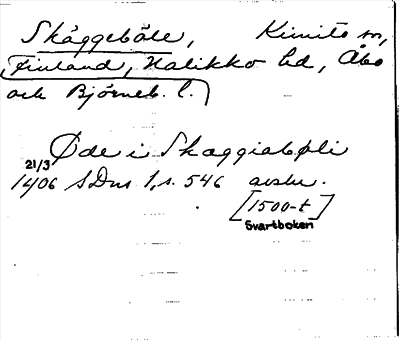 Skäggeböle, Kimito sn,
Finland, Halikko hd, Åbo
och Björneb. l.
Øde i Skæggiabøli
21/3
1406 SDns 1, s. 546 avskr.
[1500-t]
Svartboken